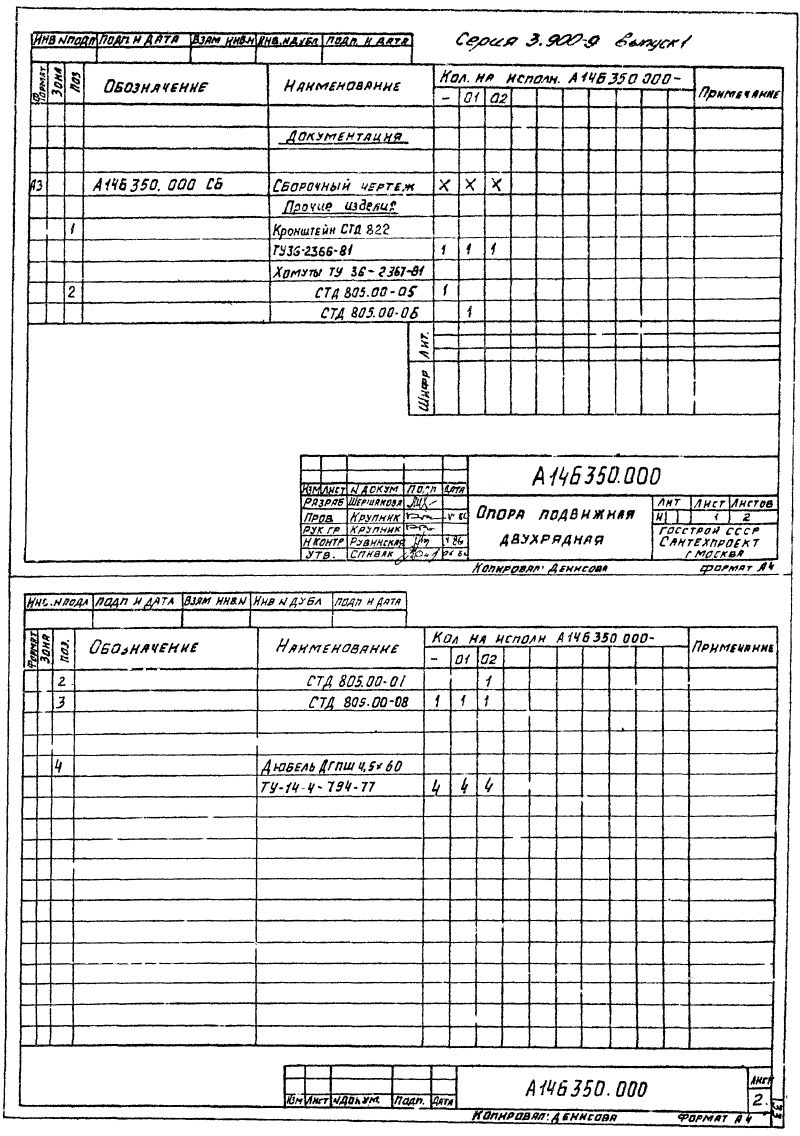 Серия 3.900-9 выпуск 1
ИНВ N ПОДЛ ПОДП И ДАТА ВЗАМ ИНВ.N ИНВ.N ДУБЛ ПОДП. И ДАТА
ФОРМАТ ЗОНА ПОЗ ОБОЗНАЧЕНИЕ НАИМЕНОВАНИЕ КОЛ. НА ИСПОЛН. А14Б350.000- ПРИМЕЧАНИЕ
- 01 02
ДОКУМЕНТАЦИЯ
А3 А14Б350.000 СБ СБОРОЧНЫЙ ЧЕРТЕЖ X X X
Прочие изделия
1 Кронштейн СТД 822
ТУ36-2366-81 1 1 1
Хомуты ТУ 36-2367-81
2 СТД 805.00-05 1
СТД 805.00-06 1
Лит.
Шифр
А14Б350.000
ИЗМ ЛИСТ N ДОКУМ ПОДП ДАТА
РАЗРАБ ШЕРШАКОВА
ПРОВ КРУПНИК
РУК ГР КРУПНИК
Н КОНТР РУВИНСКАЯ
УТВ. СПИВАК
ОПОРА ПОДВИЖНАЯ
ДВУХРЯДНАЯ
ЛИТ ЛИСТ ЛИСТОВ
И 1 2
ГОССТРОЙ СССР
САНТЕХПРОЕКТ
Г.МОСКВА
КОПИРОВАЛ: ДЕНИСОВА ФОРМАТ А4
ИНВ.N ПОДЛ ПОДП И ДАТА ВЗАМ ИНВ.N ИНВ N ДУБЛ ПОДП И ДАТА
ФОРМАТ ЗОНА ПОЗ. ОБОЗНАЧЕНИЕ НАИМЕНОВАНИЕ КОЛ НА ИСПОЛН А14Б350 000- ПРИМЕЧАНИЕ
- 01 02
2 СТД 805.00-07 1
3 СТД 805.00-08 1 1 1
4 ДЮБЕЛЬ ДГПШ 4,5×60
ТУ-14-4-794-77 4 4 4
ИЗМ ЛИСТ N ДОКУМ. ПОДП. ДАТА
А14Б350.000
ЛИСТ
2.
КОПИРОВАЛ: ДЕНИСОВА ФОРМАТ А4
33